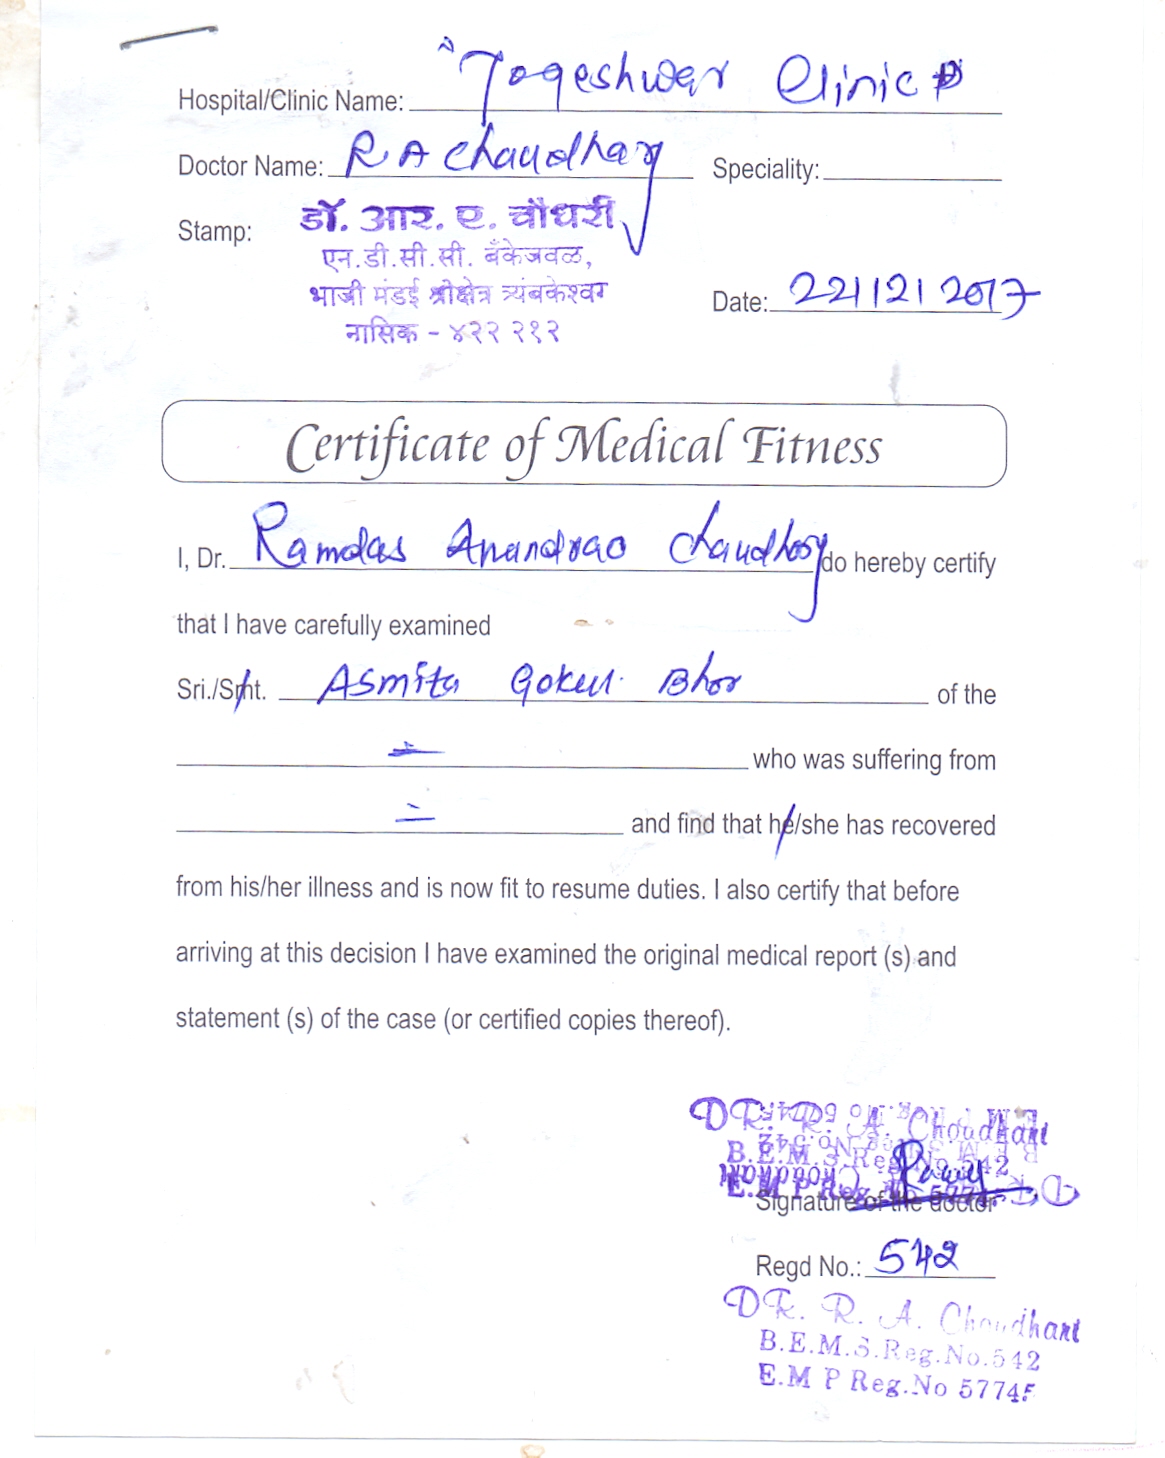 Hospital/Clinic Name: Yogeshwar Clinic
Doctor Name: R A Chaudhary Speciality:
Stamp: डॉ. आर. ए. चौधरी
एन.डी.सी.सी. बँकेजवळ,
भाजी मंडई श्रीक्षेत्र त्र्यंबकेश्वर
नासिक - ४२२ २१२
Date: 22/12/2017
Certificate of Medical Fitness
I, Dr. Ramdas Anandrao Chaudhary do hereby certify
that I have carefully examined
Sri./Smt. Asmita Gokul Bhor of the
who was suffering from
and find that he/she has recovered
from his/her illness and is now fit to resume duties. I also certify that before
arriving at this decision I have examined the original medical report (s) and
statement (s) of the case (or certified copies thereof).
DR. R. A. Choudhari
B.E.M.S Reg No. 542
E.M P Reg. No 5774
Signature of the doctor
Regd No.: 542
DR. R. A. Choudhari
B.E.M.S.Reg.No.542
E.M P Reg.No 57745